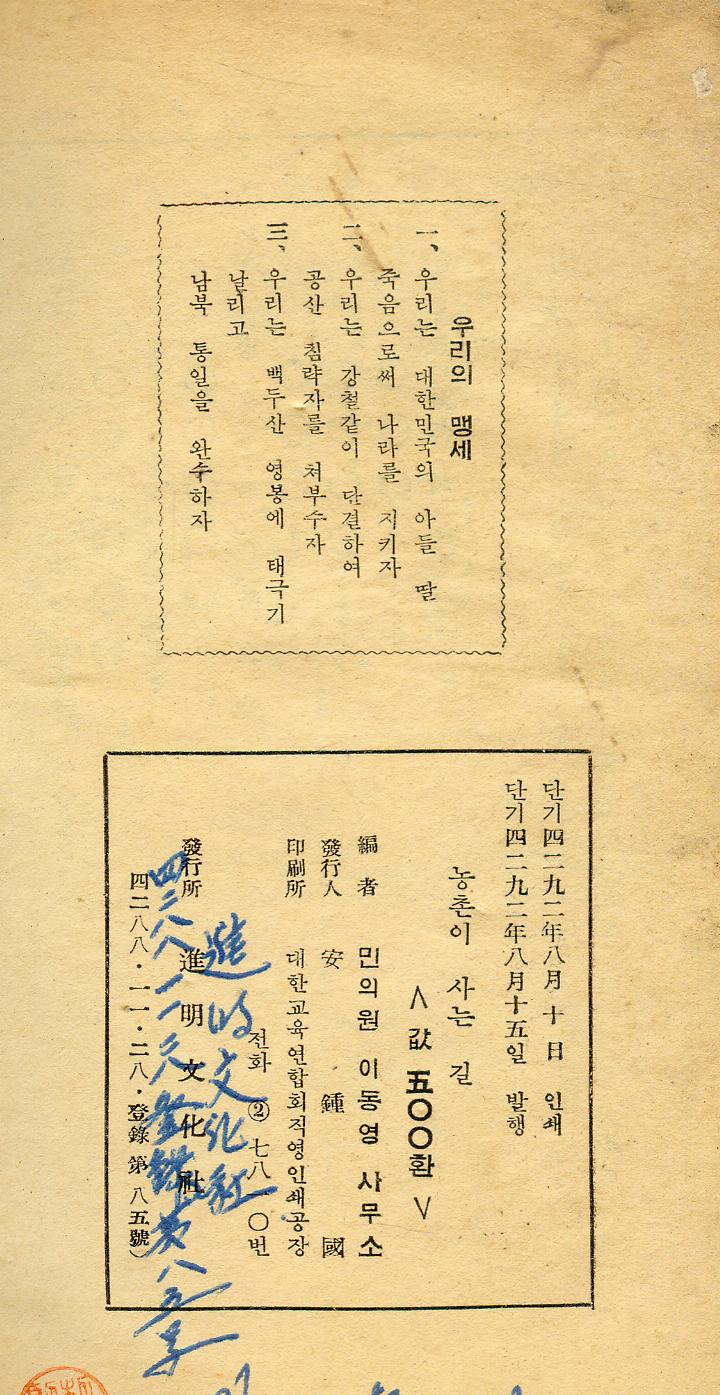 우리의 맹세
一、우리는 대한민국의 아들 딸
죽음으로써 나라를 지키자
二、우리는 강철같이 단결하여
공산 침략자를 쳐부수자
三、우리는 백두산 영봉에 태극기
날리고
남북 통일을 완수하자
단기四二九二年八月十日 인쇄
단기四二九二年八月十五일 발행
농촌이 사는 길
＜값 五〇〇환＞
編者 민의원 이동영 사무소
發行人 安鍾國
印刷所 대한교육연합회직영인쇄공장
전화 ② 七八一〇번
進明文化社
發行所 進明文化社
四二八八·一一·二八·登錄第八五號)